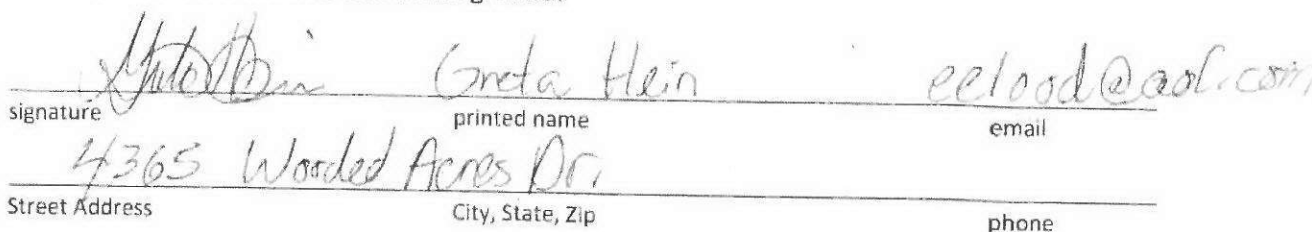 Greta Hein Greta Hein eelood@aol.com
signature printed name email
4365 Wooded Acres Dr.
Street Address City, State, Zip phone